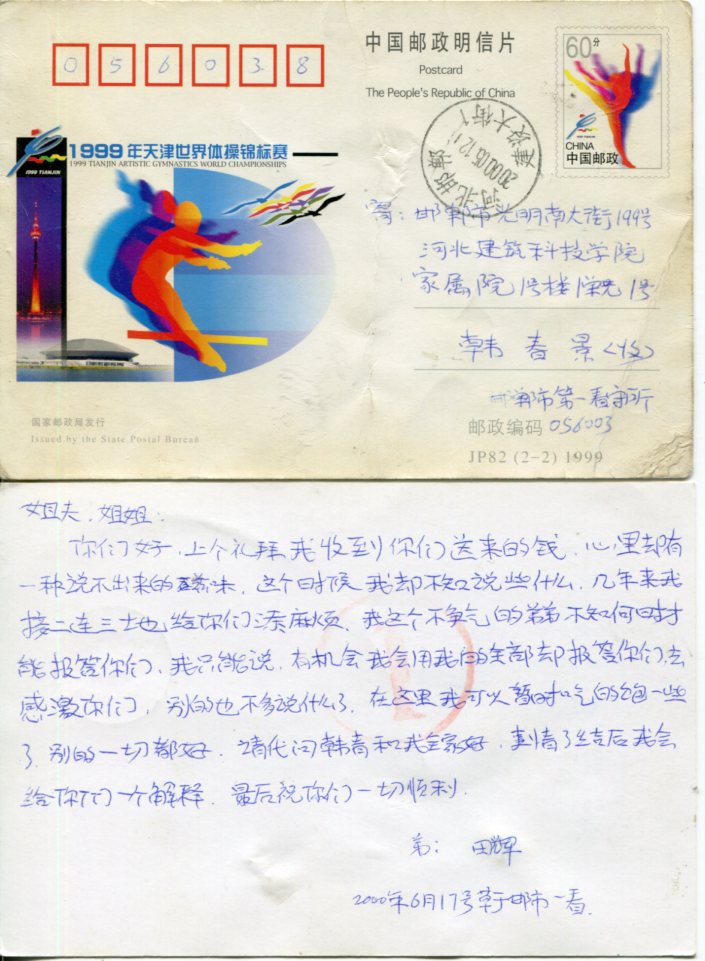 056038
中国邮政明信片
Postcard
The People's Republic of China
60分
CHINA
中国邮政
1999 TIANJIN
1999年天津世界体操锦标赛
1999 TIANJIN ARTISTIC GYMNASTICS WORLD CHAMPIONSHIPS
河北邯郸
2000.06.12.1
寄：邯郸市光明南大街199号
河北建筑科技学院
家属院1号楼单元1号
韩春景（收）
邯郸市第一看守所
邮政编码 056003
JP82 (2-2) 1999
国家邮政局发行
Issued by the State Postal Bureau
姐夫、姐姐：
你们好，上个礼拜我收到你们送来的钱，心里却有
一种说不出来的滋味，这个时候我却不知说些什么，几年来我
接二连三地给你们添麻烦，我这个不争气的弟弟不知何时才
能报答你们，我只能说，有机会我会用我的全部却报答你们，去
感激你们，别的也不多说什么了，在这里我可以暂时吃的饱一些
了，别的一切都好，请代问韩青和我全家好，事情了结后我会
给你们一个解释，最后祝你们一切顺利．
弟：田辉
2000年6月17号草于邯市一看．